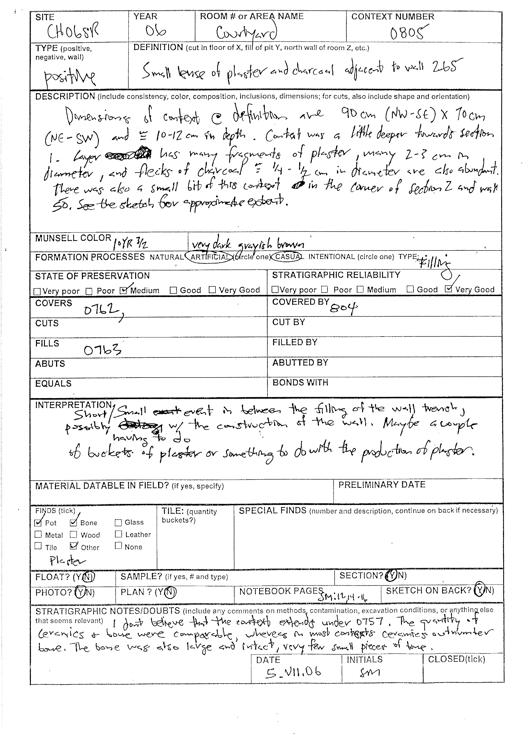 SITE YEAR ROOM # or AREA NAME CONTEXT NUMBER
CH06SR 06 Courtyard 0805
TYPE (positive, negative, wall) DEFINITION (cut in floor of X, fill of pit Y, north wall of room Z, etc.)
positive Small lense of plaster and charcoal adjacent to wall 265
DESCRIPTION (include consistency, color, composition, inclusions, dimensions; for cuts, also include shape and orientation)
Dimensions of context @ definition are 90cm (NW-SE) X 70cm
(NE-SW) and ≅ 10-12 cm in depth. Context was a little deeper towards section
1. Layer has many fragments of plaster, many 2-3 cm in
diameter, and flecks of charcoal ≅ 1/4 - 1/2 cm in diameter are also abundant.
There was also a small bit of this context in the corner of section 2 and wall
50. See the sketch for approximate extent.
MUNSELL COLOR 10YR 3/2 very dark grayish brown
FORMATION PROCESSES NATURAL ARTIFICIAL (circle one) CASUAL INTENTIONAL (circle one) TYPE: filling
STATE OF PRESERVATION STRATIGRAPHIC RELIABILITY
Very poor Poor Medium Good Very Good Very poor Poor Medium Good Very Good
COVERS 0762, COVERED BY 804
CUTS CUT BY
FILLS 0763 FILLED BY
ABUTS ABUTTED BY
EQUALS BONDS WITH
INTERPRETATION
Short/Small event in between the filling of the wall trench,
possibly w/ the construction of the wall. Maybe a couple
having to do
of buckets of plaster or something to do with the production of plaster.
MATERIAL DATABLE IN FIELD? (if yes, specify) PRELIMINARY DATE
FINDS (tick) TILE: (quantity buckets?) SPECIAL FINDS (number and description, continue on back if necessary)
Pot Bone Glass
Metal Wood Leather
Tile Other None
Plaster
FLOAT? (Y/N) SAMPLE? (if yes, # and type) SECTION? (Y/N)
PHOTO? (Y/N) PLAN? (Y/N) NOTEBOOK PAGES SM:12,14-16 SKETCH ON BACK? (Y/N)
STRATIGRAPHIC NOTES/DOUBTS (include any comments on methods, contamination, excavation conditions, or anything else
that seems relevant) I don't believe that the context extends under 0757. The quantity of
ceramics & bone were comparable, whereas in most contexts ceramics outnumber
bone. The bone was also large and intact, very few small pieces of bone.
DATE INITIALS CLOSED(tick)
5.VII.06 SM